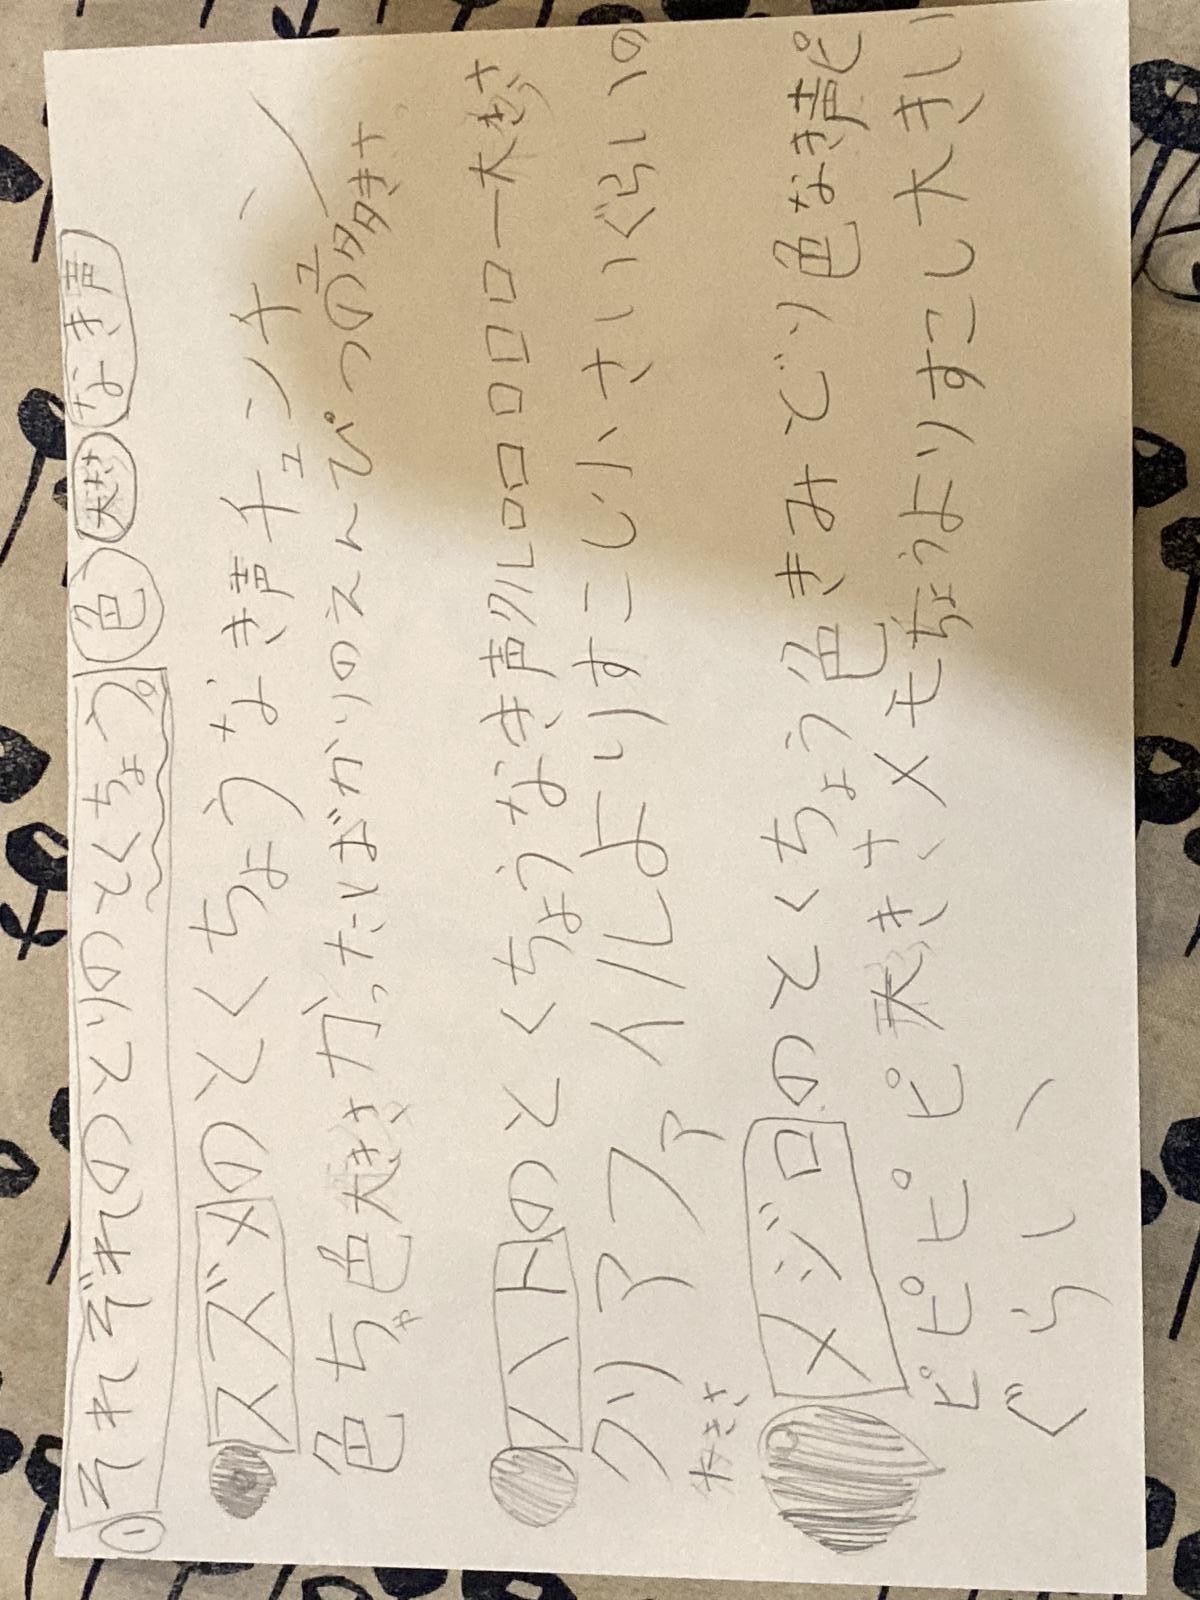 ① それぞれのとりのとくちょう。 色 大きさ なき声
スズメのとくちょうなき声チュンチュン
色ちゃ色大きさかったばかりのえんぴつの大きさ
ハトのとくちょうなき声クルロロロロロー大きさ
クリアファイルよりすこし小さいぐらいの
大きさ
メジロのとくちょう色きみどり色なき声ピ
ピピピピ大きさ、メモちょうよりすこし大きい
ぐらい